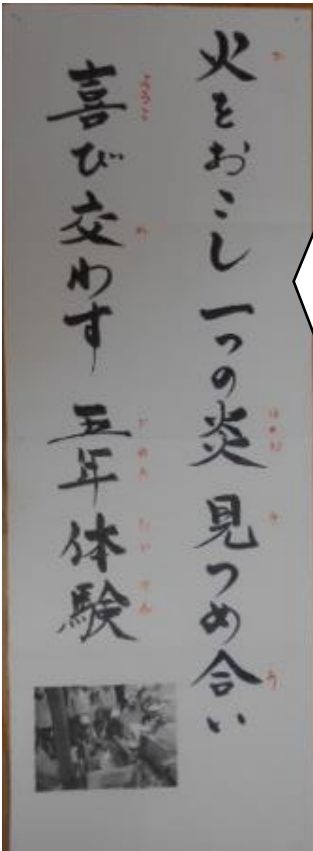 火をおこし 一つの炎 見つめ合い
喜び交わす 五年体験